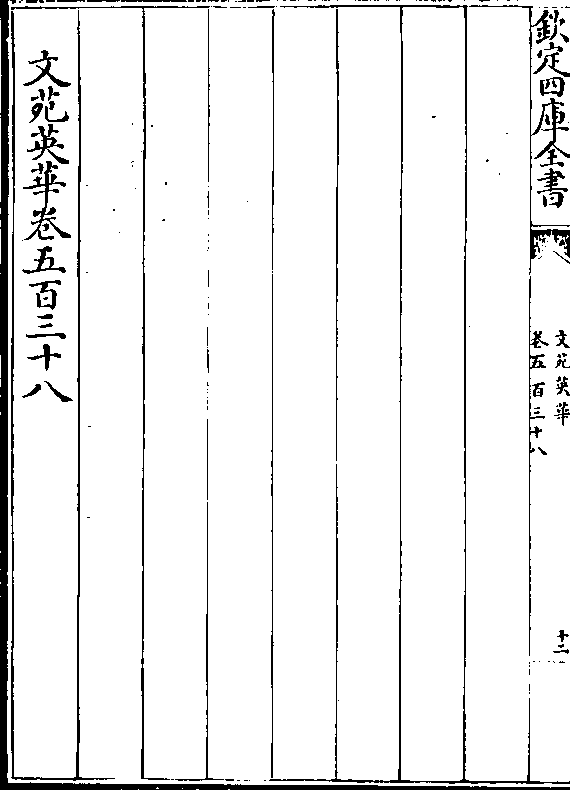 欽定四庫全書
文苑英華
卷五百三十八
十二
文苑英華卷五百三十八